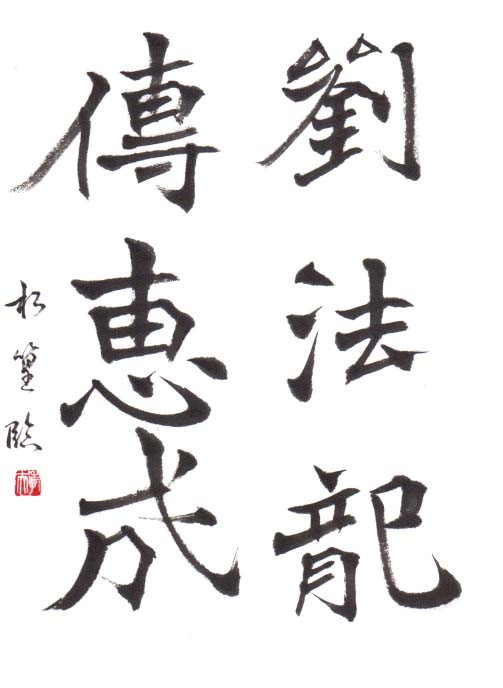 劉法龍
傳惠成
松篁臨